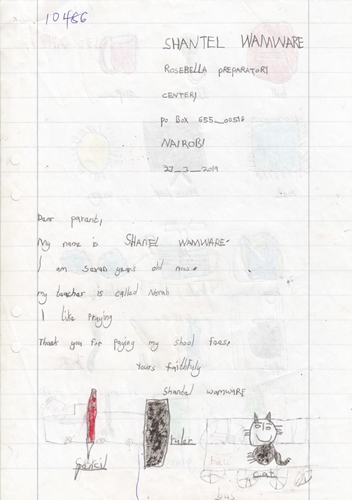 10486
SHANTEL WAMWARE
ROSEBELLA PREPARATORY
CENTER,
po Box 655_00515
NAIROBI
27_3_2019
Dear parent,
My name is SHANTEL WAMWARE.
I am seven years old now.
my teacher is called Norah
I like Praying
Thank you for paying my shool fees.
Yours faithfuly
Shantel WAMWARE
ruler
cat